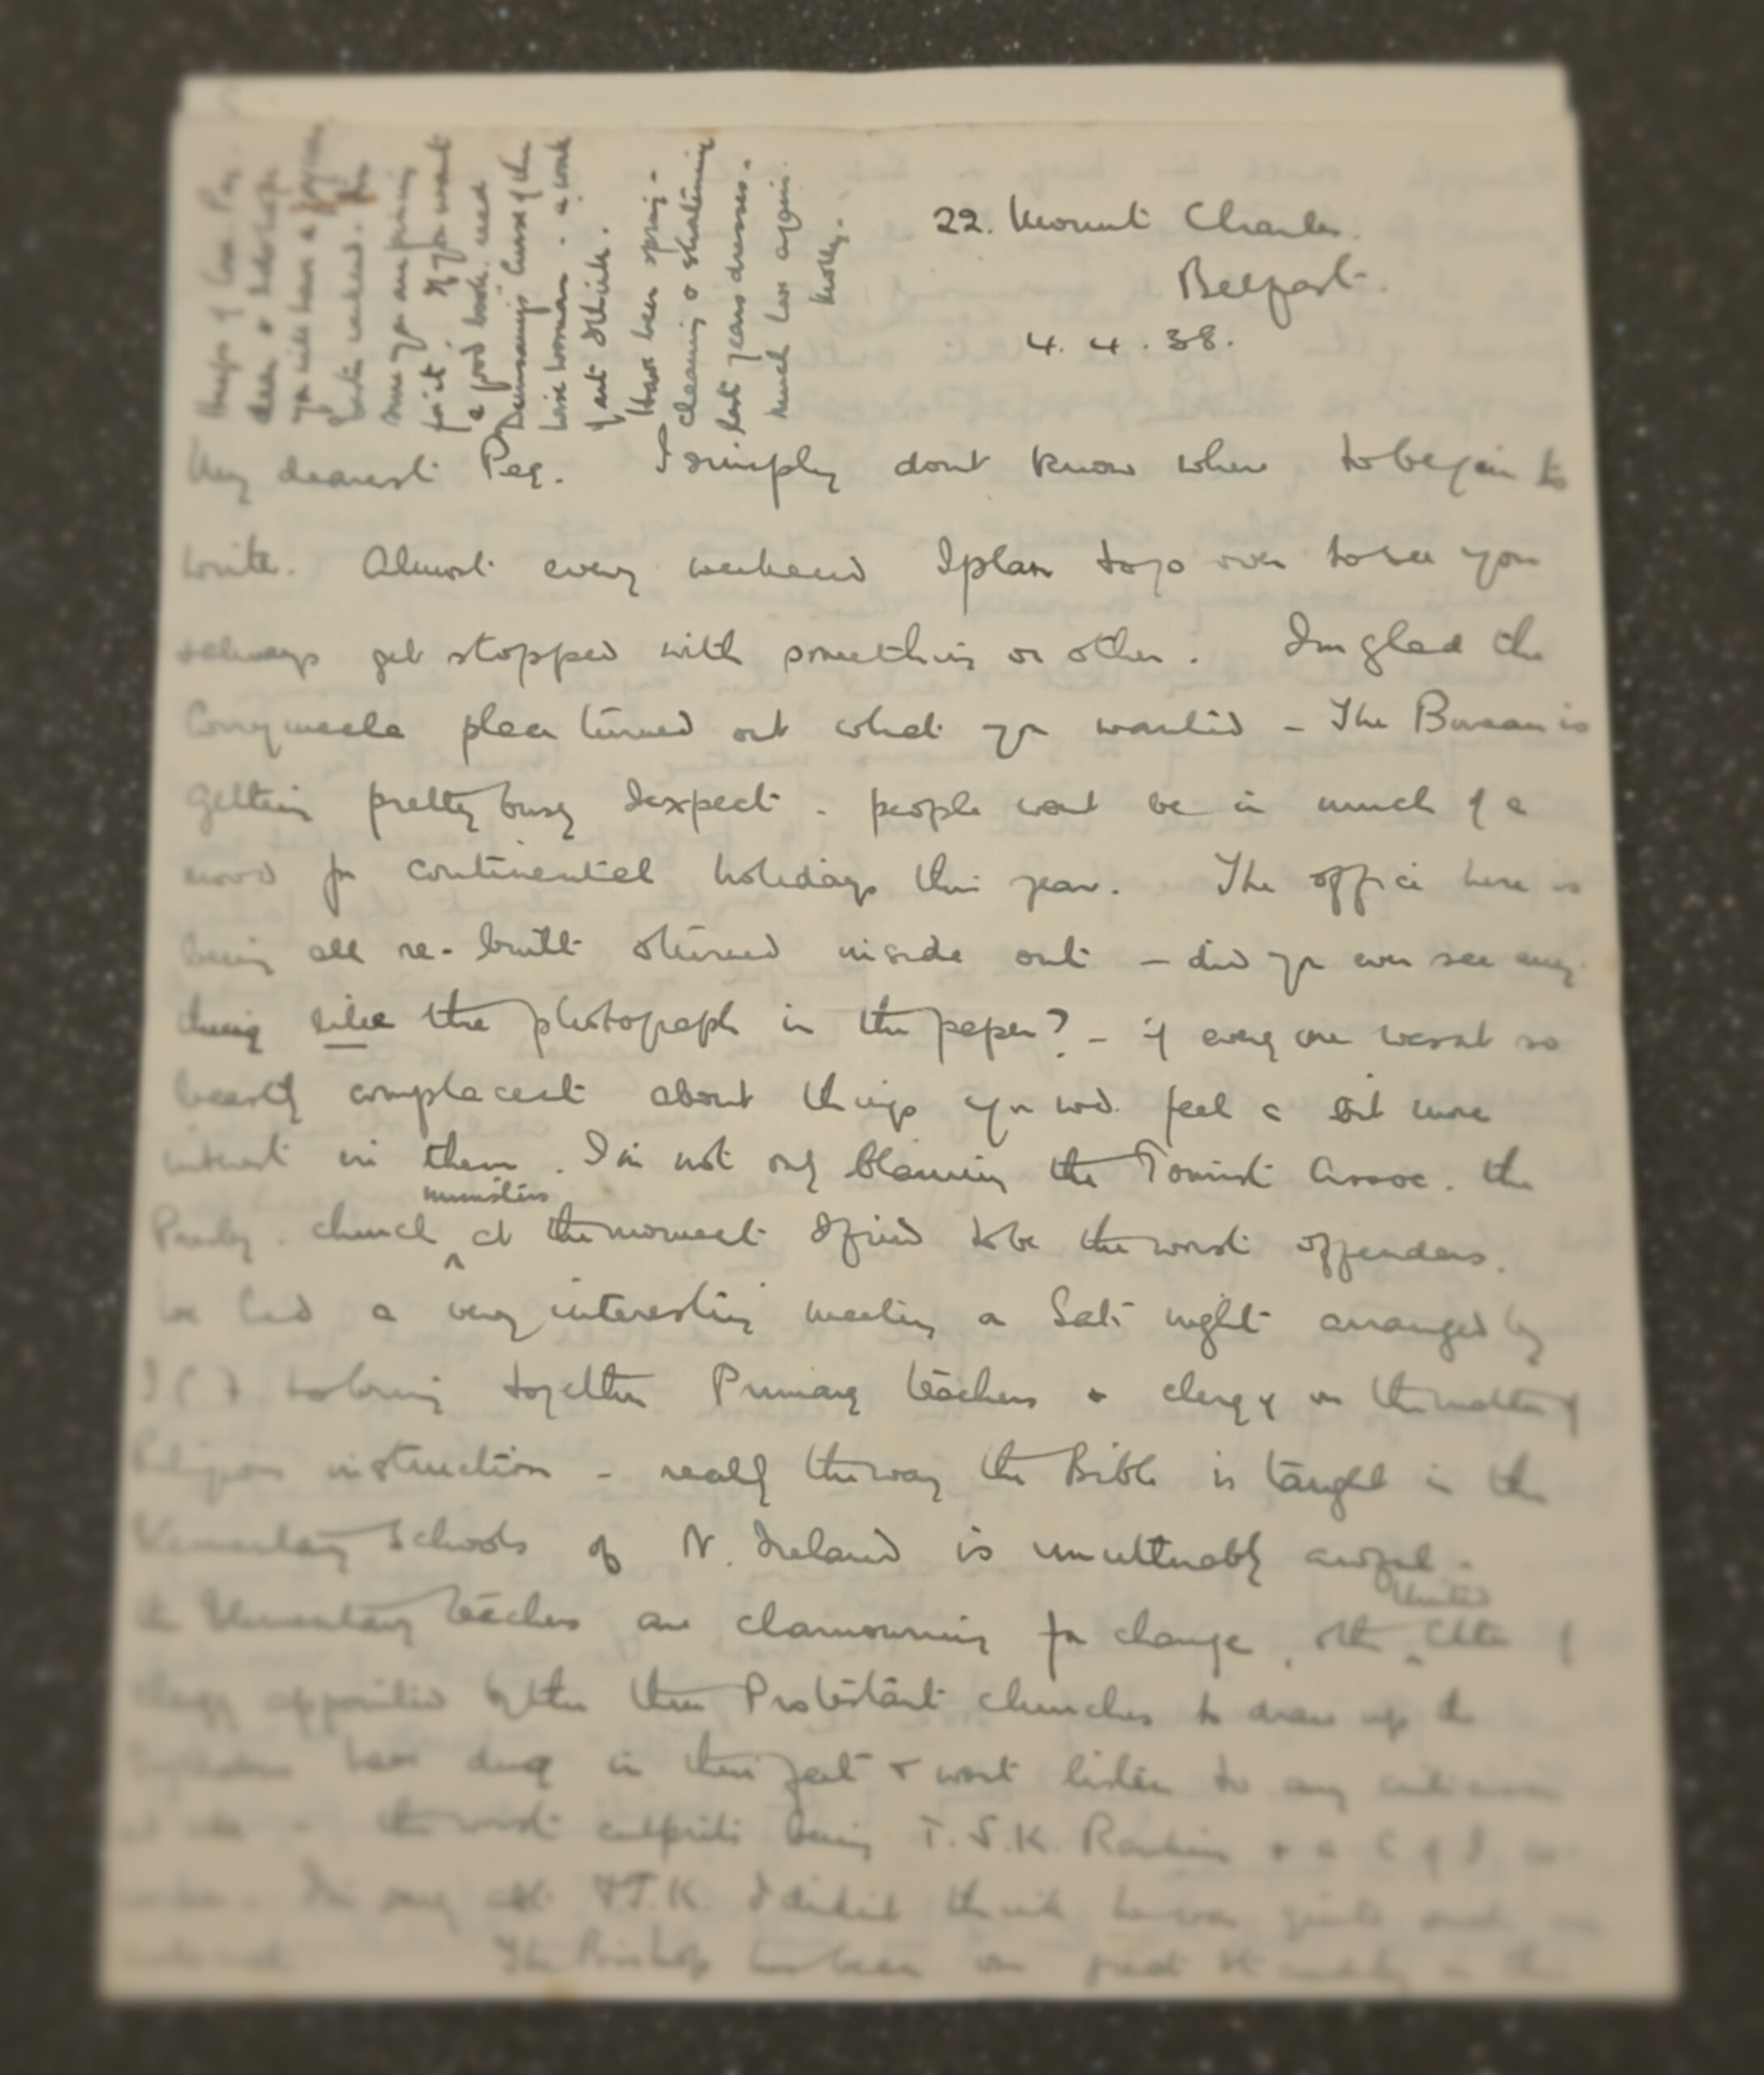 22. Mount Charles.
Belfast.
4. 4. 38.
My dearest Peg. I simply dont know where to begin to
write. Almost every weekend I plan to go over to see you
& always get stopped with something or other. Im glad the
Corrymeela place turned out what you wanted - The Bureau is
getting pretty busy I expect - people wont be in much of a
mood for continental holidays this year. The office here is
being all re-built & turned inside out - did you ever see any-
thing like the photograph in the paper? - if every one wasnt so
beastly complacent about things you wd. feel a bit more
interest in them. I'm not only blaming the Tourist Assoc. the
Presby. church ministers at the moment I find to be the worst offenders.
We had a very interesting meeting a Sat. night arranged by
to bring together Primary teachers & clergy on the matter of
Religious instruction - really the way the Bible is taught in the
Elementary Schools of N. Ireland is unutterably awful -
the Elementary teachers are clamouring for change, & the United Cttee of
clergy appointed by the three Protestant churches to draw up the
syllabus have dug in their feet & wont listen to any criticism
at all - the worst culprits being T.S.K. Rankin & a C of I
I didnt think he was quite such an
The Bishop has been on great
Heaps of love Peg
dear & I do hope
you will have a joyous
Easter weekend. Im
sure you are pining
for it. If you want
a good book read
Dunsany's Curse of the
Wise Woman - a work
of art I think.
Have been spring-
cleaning & shortening
last years dresses.
Much love again.
Molly.